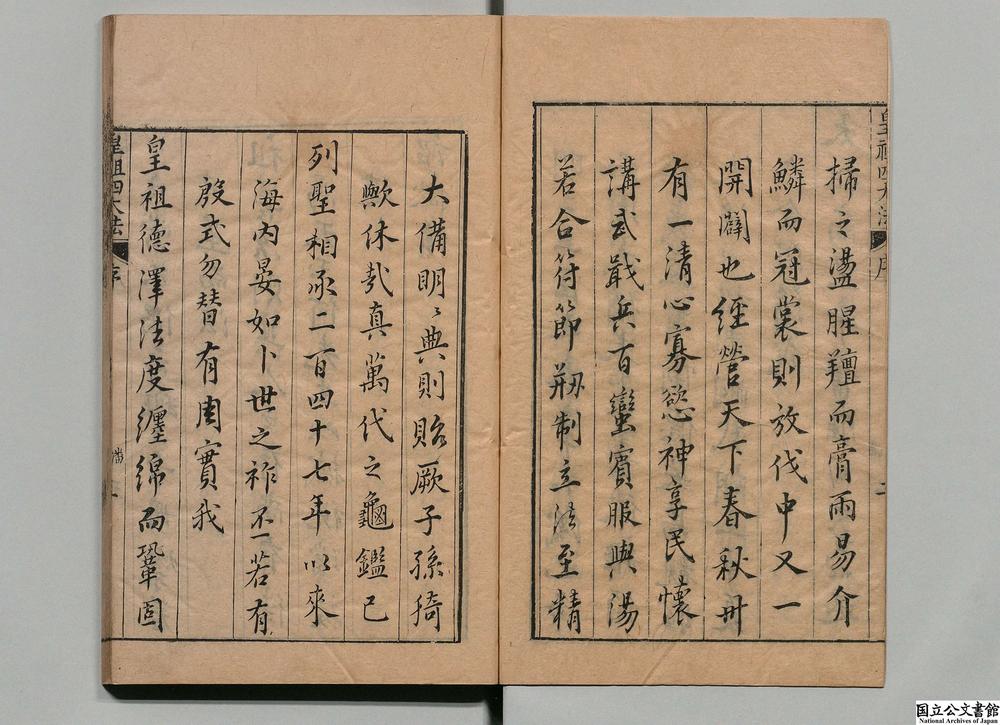 皇祖四大法
序
掃之盪腥羶而膏雨易介
鱗而冠裳則放伐中又一
開闢也經營天下春秋卌
有一清心寡慾神享民懷
講武戢兵百蠻賓服與湯
若合符節剏制立法至精
大備明〻典則貽厥子孫猗
歟休㢤真萬代之龜鑑已
列聖相承二百四十七年以來
海內晏如卜世之祚不一若有
殷式勿替有周實我
皇祖德澤法度纏綿而鞏固
皇祖四大法
序
国立公文書館
National Archives of Japan